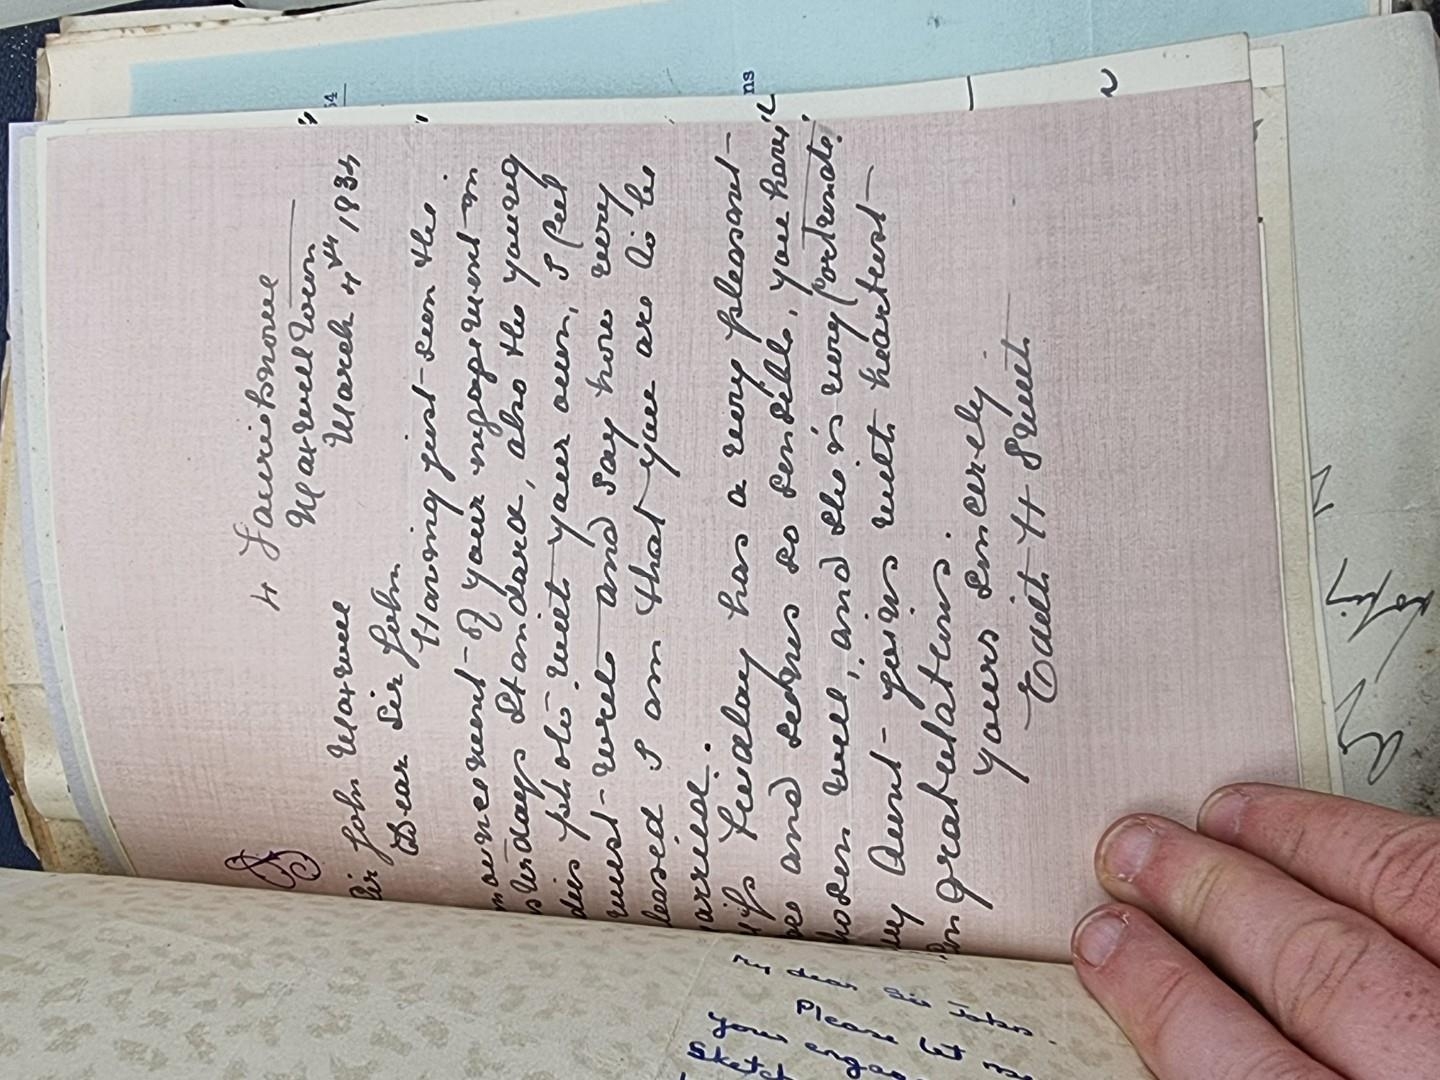 4 Lauriknowe
Maxwelltown
March 4th 1934
Sir John Maxwell
Dear Sir John
Having just seen the
announcement of your engagement in
yesterdays Standard, also the young
ladies photo with your own, I feel
I must write and say how very
pleased I am that you are to be
married.
Miss has a very pleasant
face and seems so sensible, you have
chosen well, and she is very fortunate.
My Aunt joins with heartiest
Congratulations.
Yours Sincerely
Edith H
My dear Sir John.
Please let me
your engag
Sketch
ns